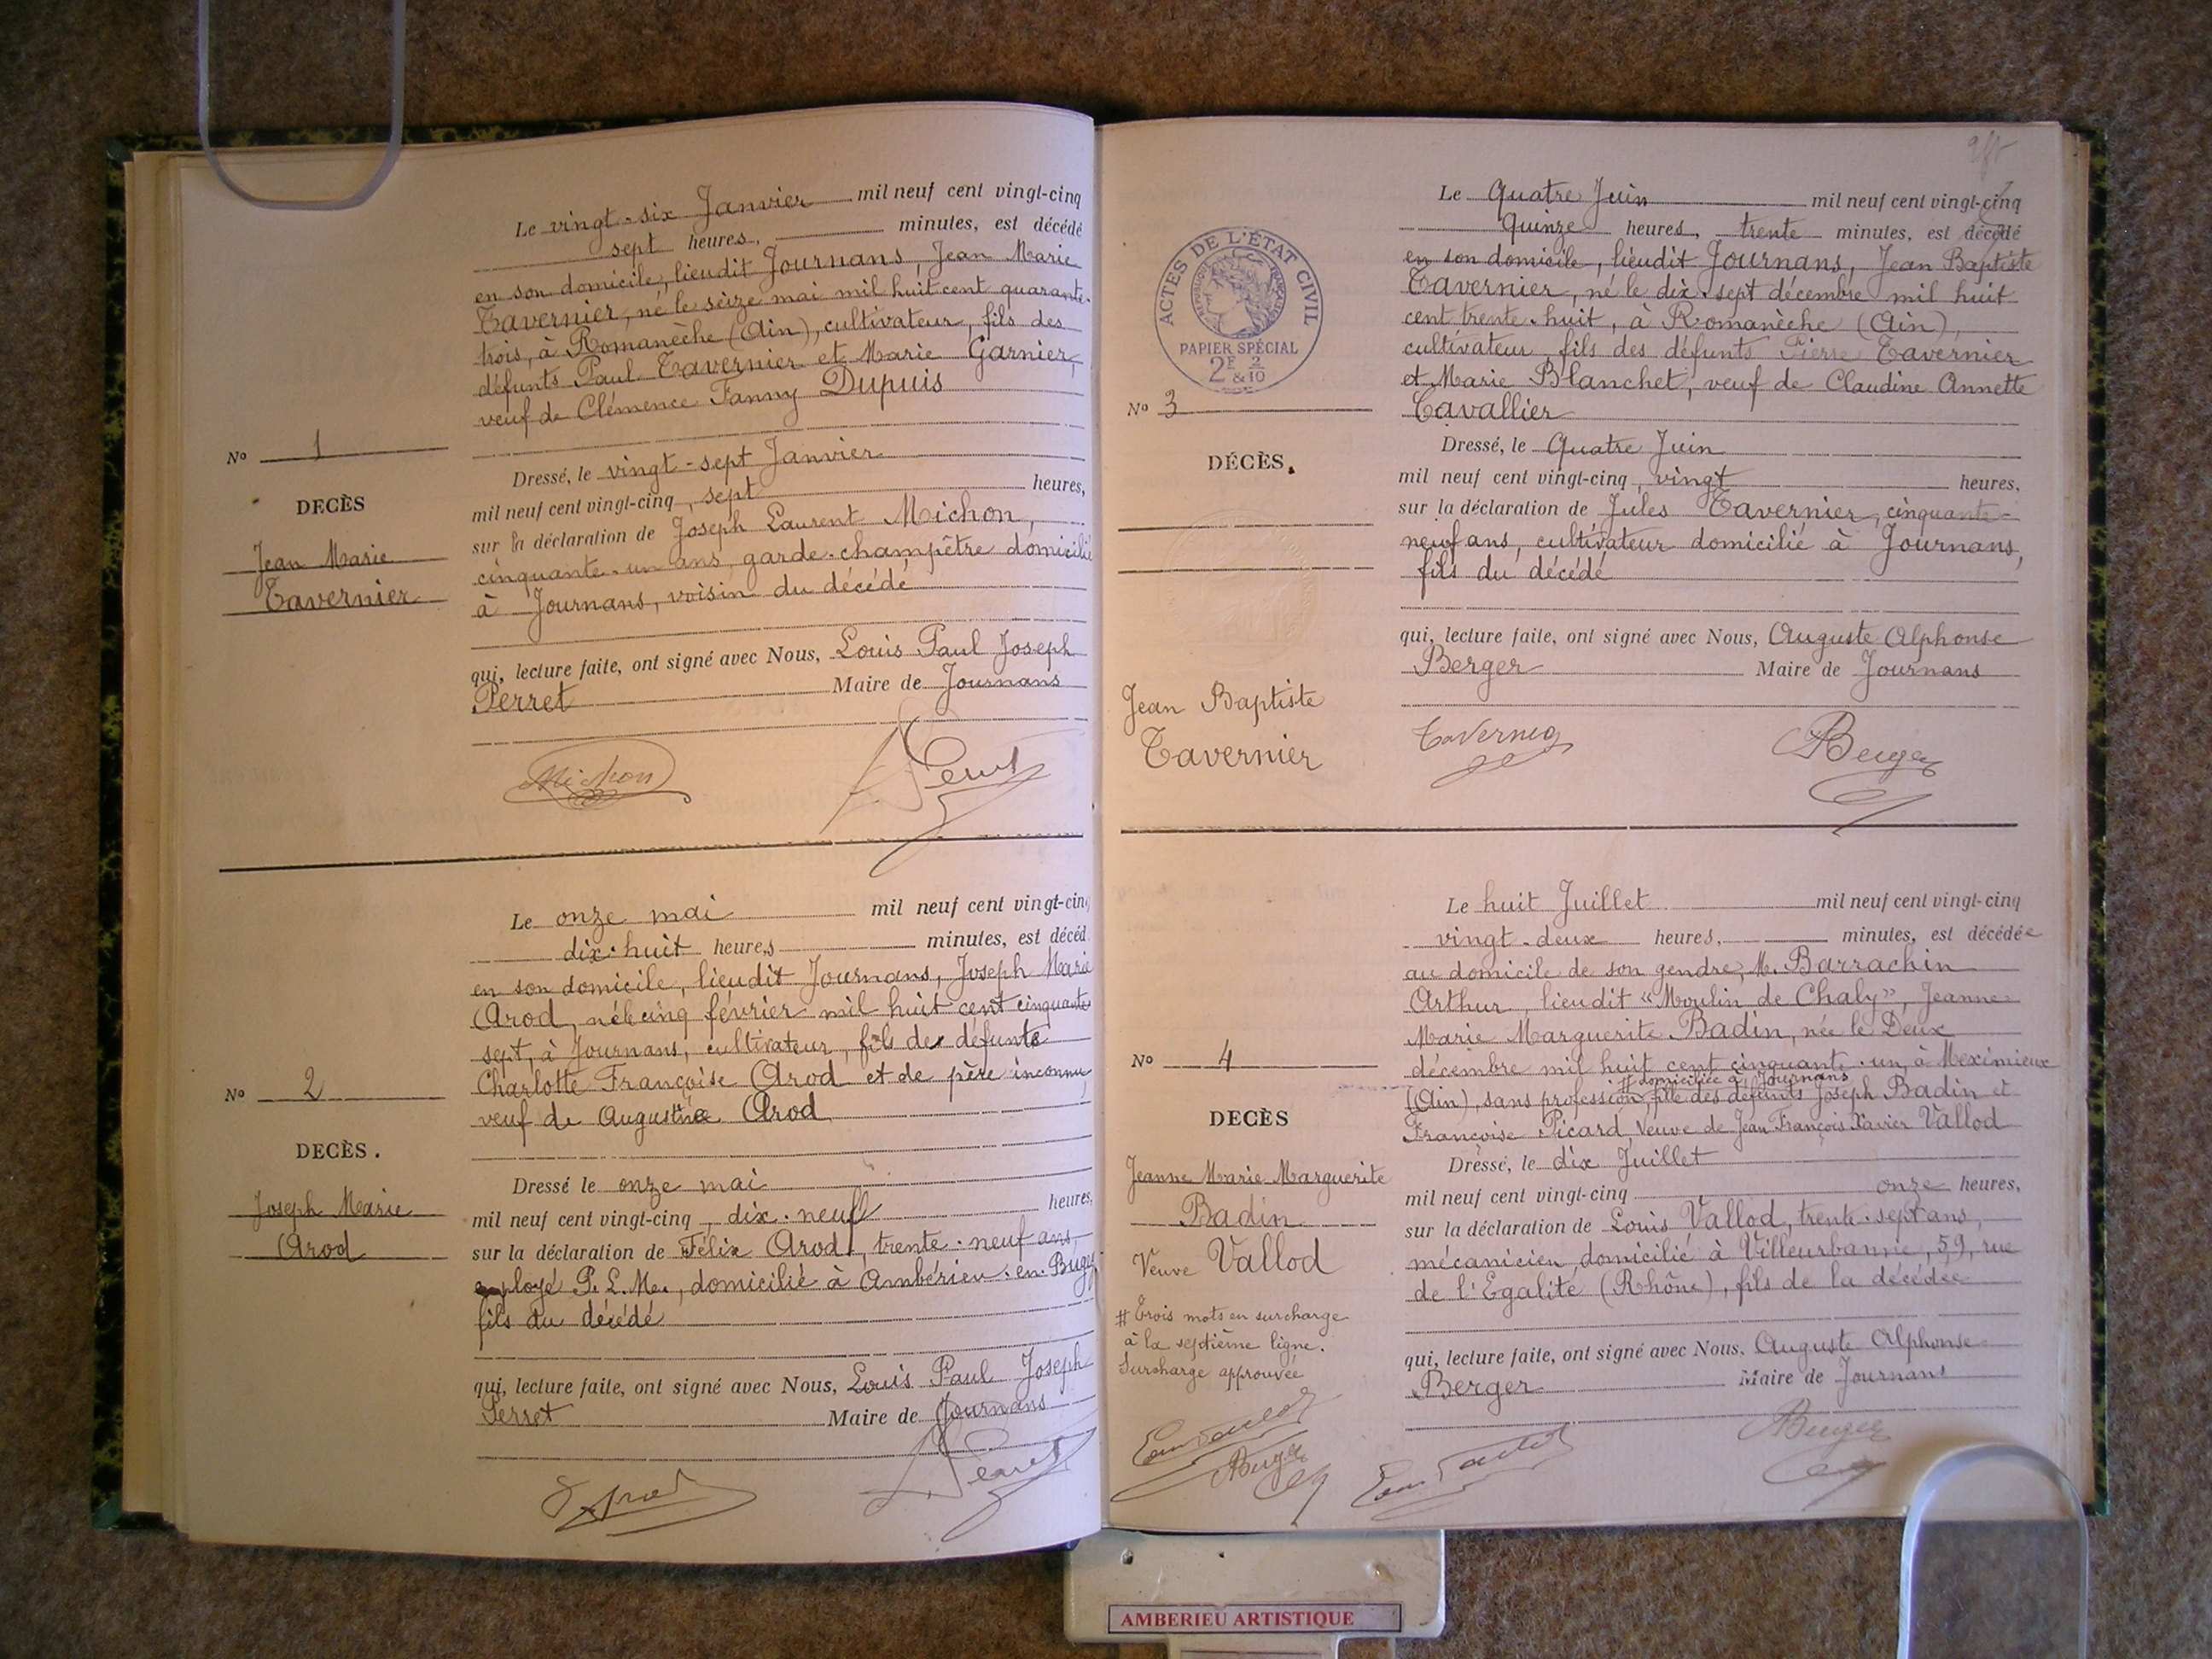 Le vingt-six Janvier mil neuf cent vingt-cinq
sept heures, minutes, est décédé
en son domicile, lieudit Journans, Jean Marie
Tavernier, né le seize mai mil huit cent quarante-
trois, à Romanèche (Ain), cultivateur, fils des
défunts Paul Tavernier et Marie Garnier,
veuf de Clémence Fanny Dupuis
No 1
DECÈS
Jean Marie
Tavernier
Dressé, le vingt-sept Janvier
mil neuf cent vingt-cinq, sept heures,
sur la déclaration de Joseph Laurent Michon,
cinquante-un ans, garde-champêtre domicilié
à Journans, voisin du décédé
qui, lecture faite, ont signé avec Nous, Louis Paul Joseph
Perret Maire de Journans
Michon Perret
Le onze mai mil neuf cent vingt-cinq
dix-huit heures minutes, est décéd
en son domicile, lieudit Journans, Joseph Marie
Arod, né le cinq février mil huit cent cinquante
sept, à Journans, cultivateur, fils de défunte
Charlotte Françoise Arod et de père inconnu,
veuf de Augustine Arod
No 2
DECÈS.
Joseph Marie
Arod
Dressé le onze mai
mil neuf cent vingt-cinq, dix-neuf heures,
sur la déclaration de Félix Arod, trente-neuf ans,
employé P. L. M., domicilié à Ambérieu-en-Bugey
fils du décédé
qui, lecture faite, ont signé avec Nous, Louis Paul Joseph
Perret Maire de Journans
Arod Perret
Le Quatre Juin mil neuf cent vingt-cinq
Quinze heures, trente minutes, est décédé
en son domicile, lieudit Journans, Jean Baptiste
Tavernier, né le dix-sept décembre mil huit
cent trente-huit, à Romanèche (Ain),
cultivateur, fils des défunts Pierre Tavernier
et Marie Blanchet, veuf de Claudine Annette
Cavallier
ACTES DE L'ÉTAT CIVIL
RÉPUBLIQUE FRANÇAISE
PAPIER SPÉCIAL
2F 2 & 10
No 3
DÉCÈS.
Jean Baptiste
Tavernier
Dressé, le Quatre Juin
mil neuf cent vingt-cinq, vingt heures,
sur la déclaration de Jules Tavernier, cinquante-
neuf ans, cultivateur domicilié à Journans,
fils du décédé
qui, lecture faite, ont signé avec Nous, Auguste Alphonse
Berger Maire de Journans
Tavernier ABerger
Le huit Juillet mil neuf cent vingt-cinq
vingt-deux heures, minutes, est décédée
au domicile de son gendre, M. Barrachin
Arthur, lieudit «Moulin de Chaly», Jeanne
Marie Marguerite Badin, née le Deux
décembre mil huit cent cinquante-un, à Meximieux
# domiciliée à Journans
(Ain), sans profession, fille des défunts Joseph Badin et
Françoise Picard, Veuve de Jean François Xavier Vallod
No 4
DECÈS
Jeanne Marie Marguerite
Badin
Veuve Vallod
# Trois mots en surcharge
à la septième ligne.
Surcharge approuvée
Berger
Dressé, le dix Juillet
mil neuf cent vingt-cinq onze heures,
sur la déclaration de Louis Vallod, trente-sept ans,
mécanicien, domicilié à Villeurbanne, 59, rue
de l'Egalité (Rhône), fils de la décédée
qui, lecture faite, ont signé avec Nous, Auguste Alphonse
Berger Maire de Journans
ABerger
AMBERIEU ARTISTIQUE